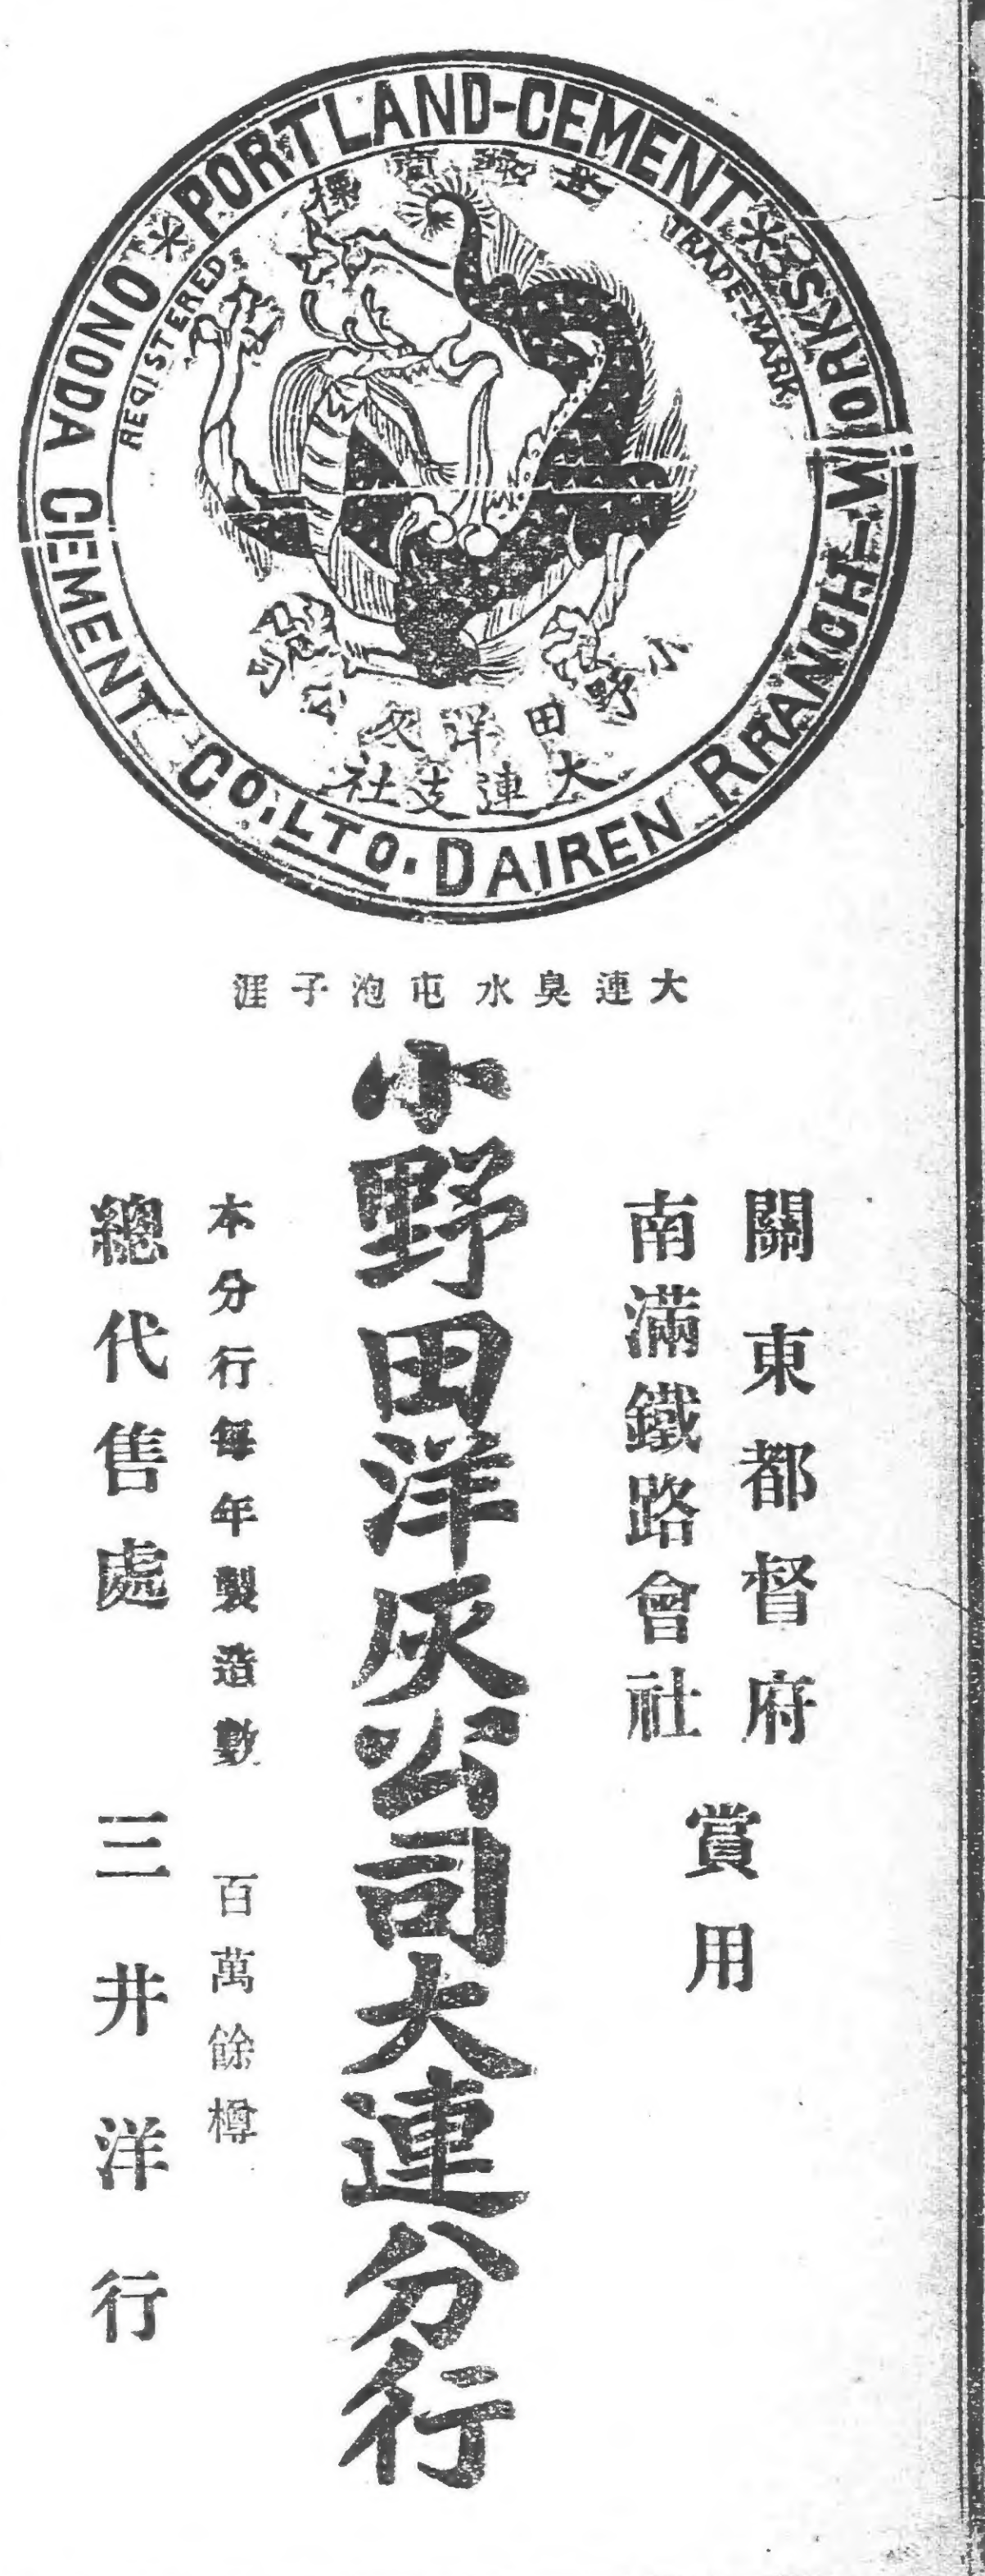 PORTLAND-CEMENT
ONODA CEMENT CO.,LTD. DAIREN BRANCH-WORKS
REGISTERED TRADE-MARK
小野田洋灰公司
大連支社
大連臭水屯泡子涯
關東都督府
南滿鐵路會社
賞用
小野田洋灰公司大連分行
本分行每年製造數 百萬餘樽
總代售處 三井洋行